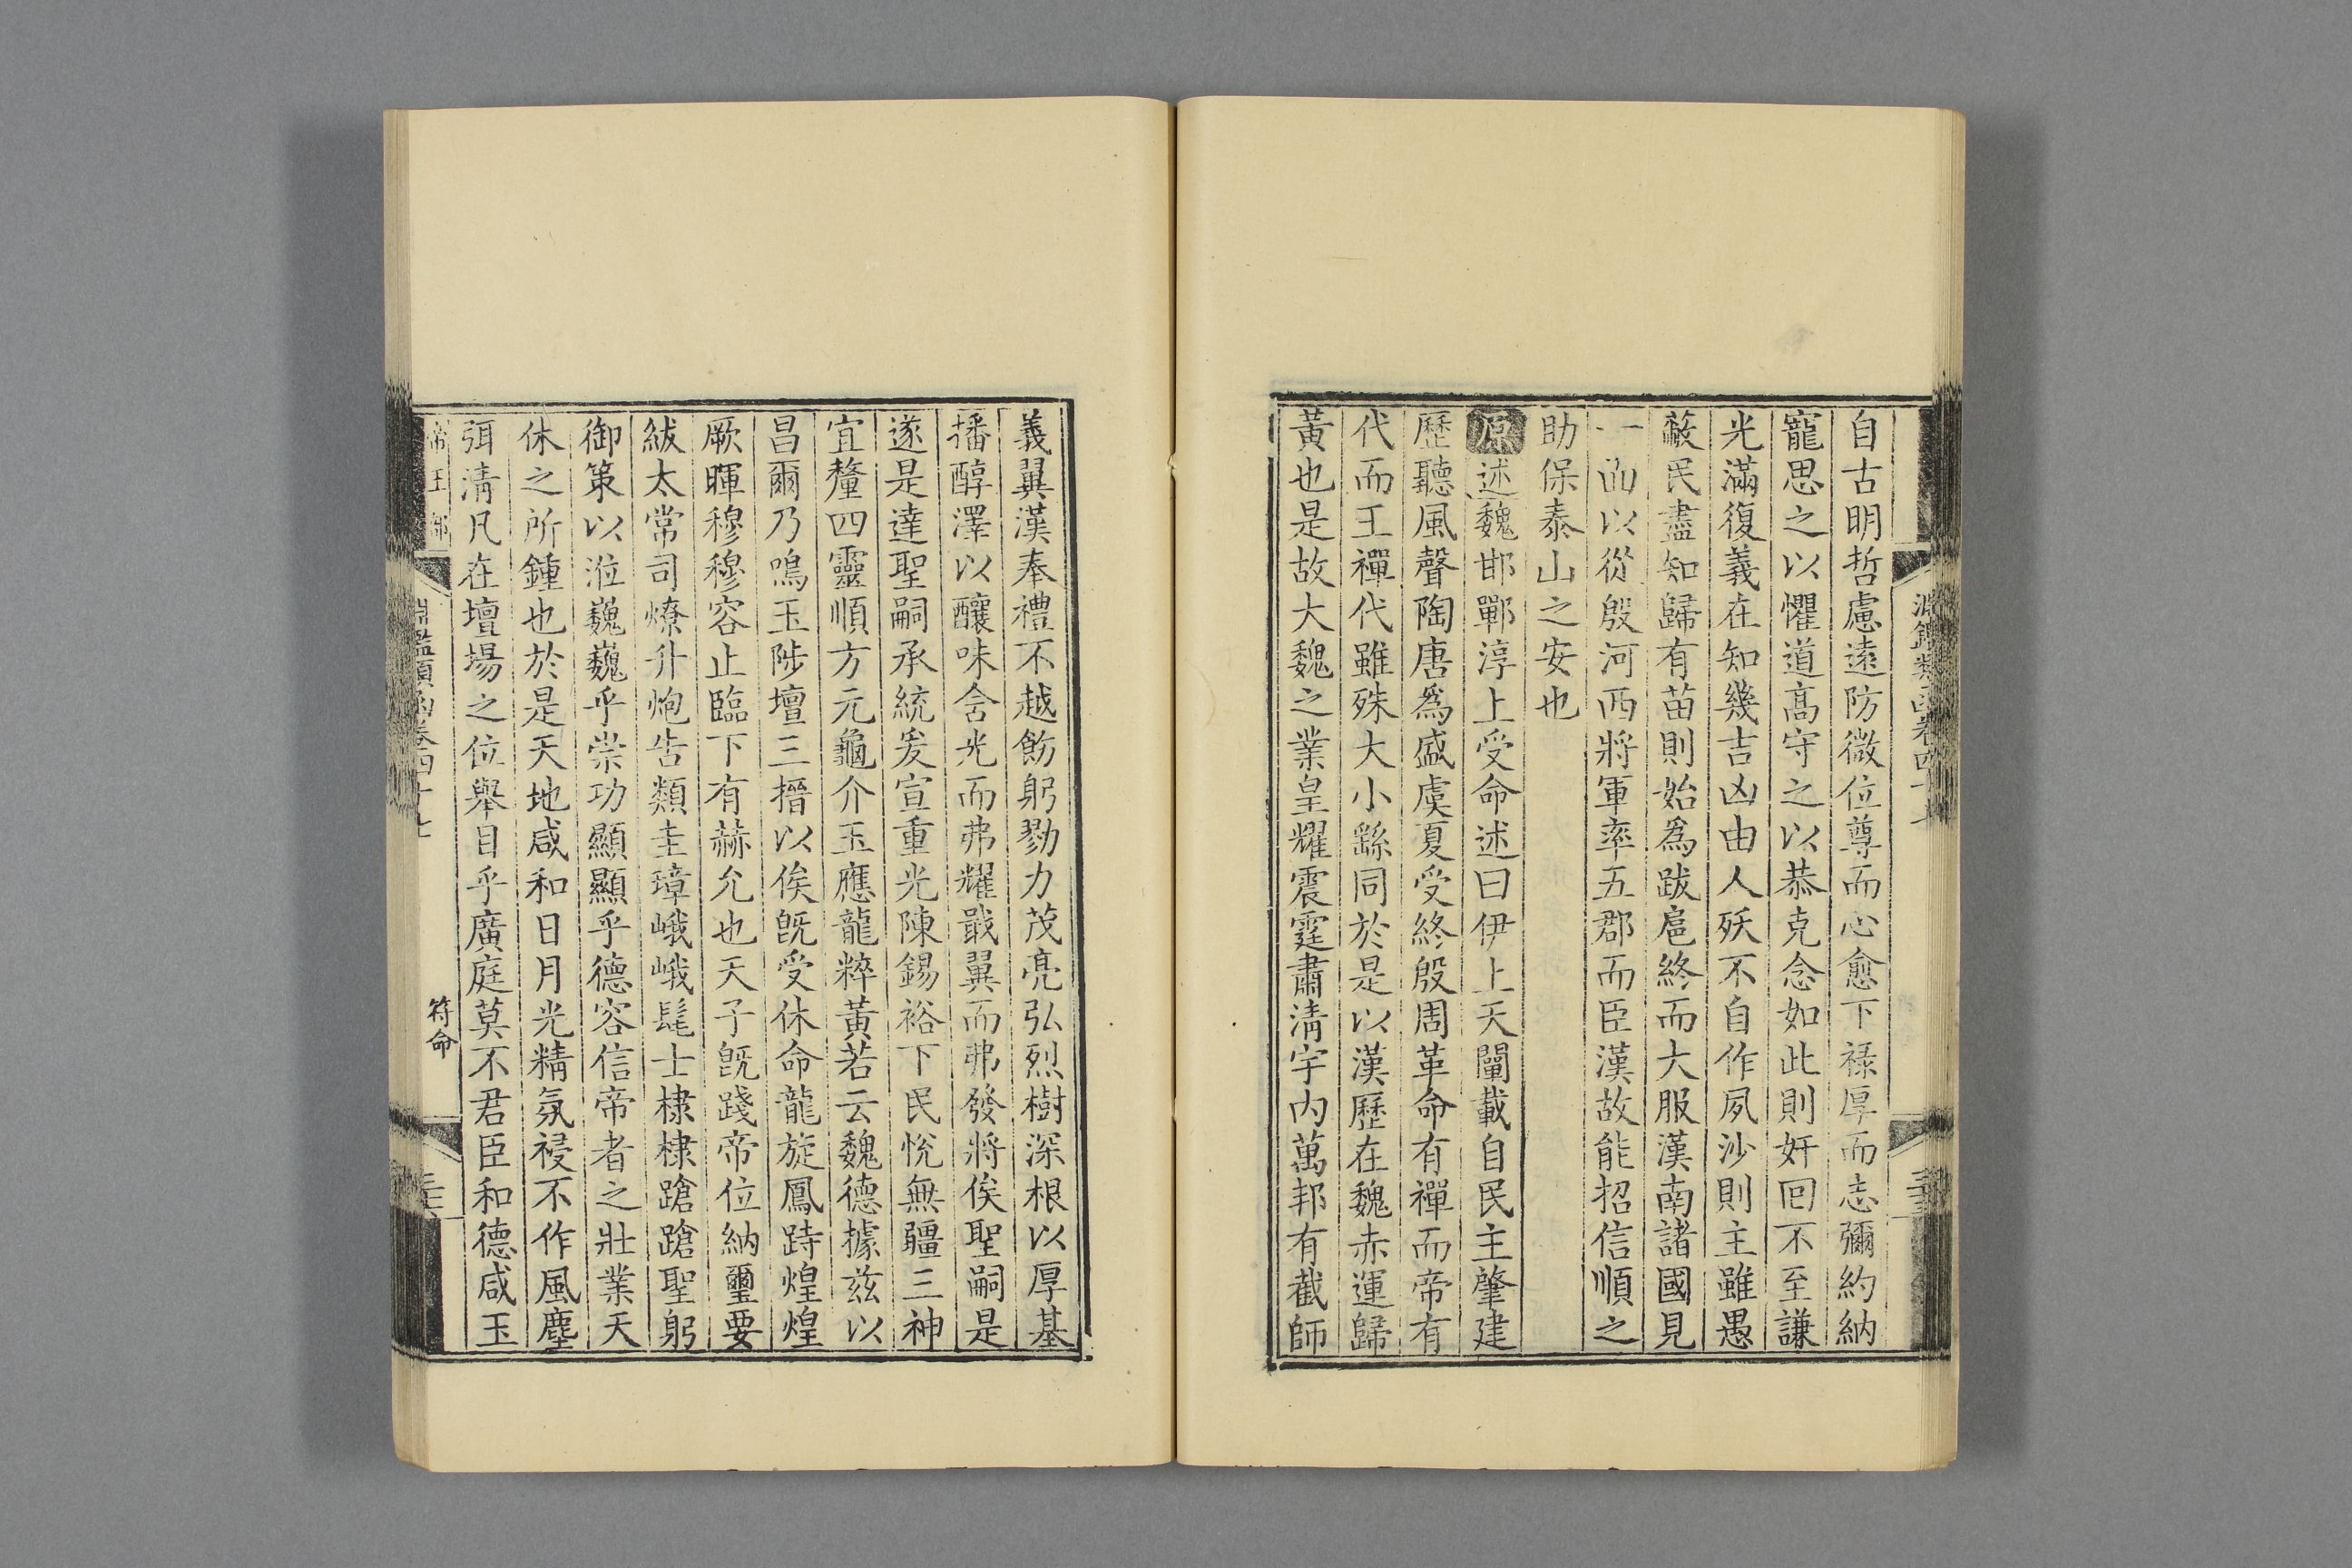 自古明哲慮遠防微位尊而心愈下禄厚而志彌約納
寵思之以懼道高守之以恭克念如此則奸回不至謙
光滿復義在知幾吉凶由人殀不自作夙沙則主雖愚
蔽民盡知歸有苗則始爲跋扈終而大服漢南諸國見
一面以從殷河西將軍率五郡而臣漢故能招信順之
助保泰山之安也
原述魏邯鄲淳上受命述曰伊上天闡載自民主肇建
歷聽風聲陶唐爲盛虞夏受終殷周革命有禪而帝有
代而王禪代雖殊大小繇同於是以漢歷在魏赤運歸
黃也是故大魏之業皇耀震霆肅清宇内萬邦有截師
義翼漢奉禮不越飭躬勠力茂亮弘烈樹深根以厚基
播醇澤以釀味含光而弗耀戢翼而弗發將俟聖嗣是
遂是達聖嗣承統爰宣重光陳錫裕下民悅無疆三神
宜釐四靈順方元龜介玉應龍粹黃若云魏德據兹以
昌爾乃鳴玉陟壇三搢以俟旣受休命龍旋鳳跱煌煌
厥暉穆穆容止臨下有赫允也天子旣踐帝位納璽要
紱太常司燎升炮告類圭璋峨峨髦士棣棣蹌蹌聖躬
御策以涖巍巍乎崇功顯顯乎德容信帝者之壯業天
休之所鍾也於是天地咸和日月光精氛祲不作風塵
弭清凡在壇場之位舉目乎廣庭莫不君臣和德咸玉
帝王部
淵鑑類函卷四十七
符命